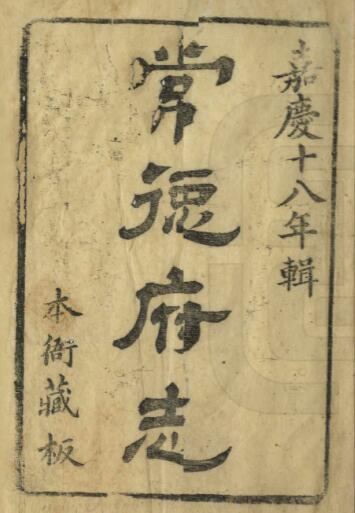 嘉慶十八年輯
常德府志
本衙藏板